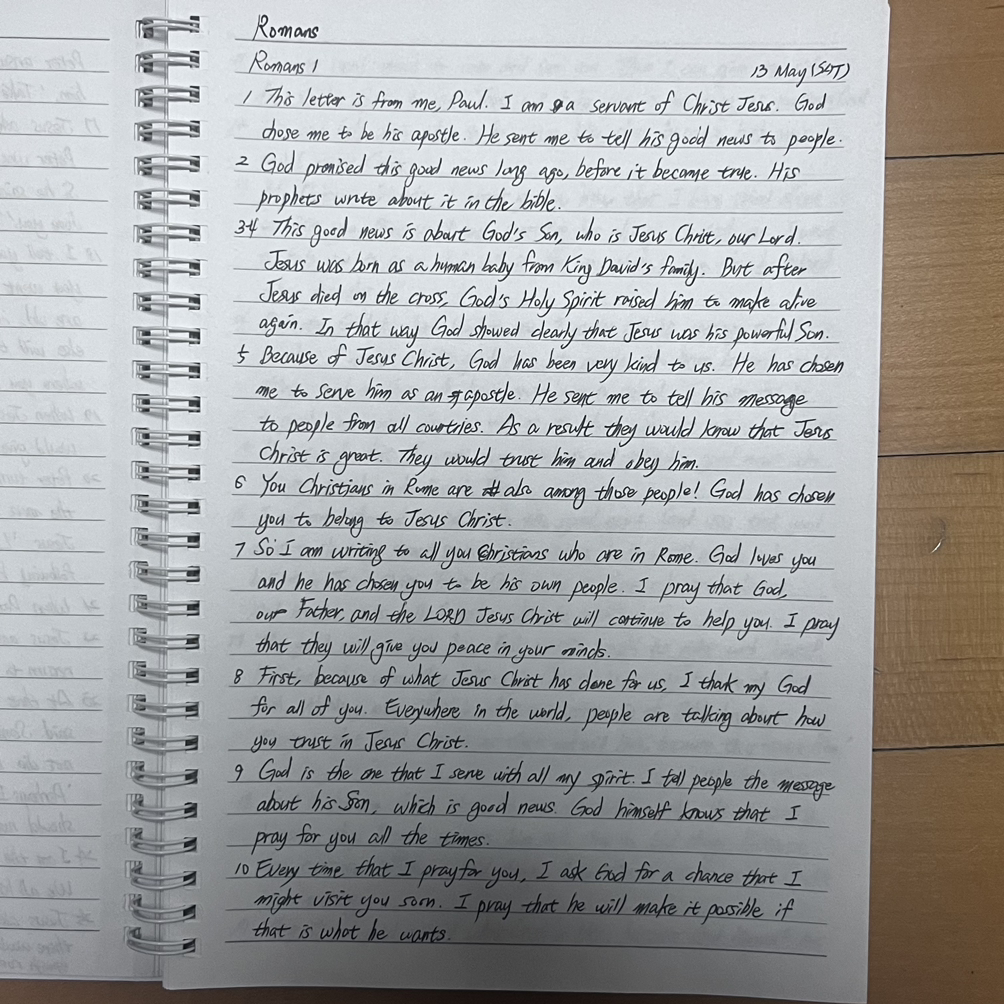 Romans
Romans 1 13 May (SAT)
1 This letter is from me, Paul. I am a servant of Christ Jesus. God
chose me to be his apostle. He sent me to tell his good news to people.
2 God promised this good news long ago, before it became true. His
prophets wrote about it in the bible.
3-4 This good news is about God's Son, who is Jesus Christ, our Lord.
Jesus was born as a human baby from King David's family. But after
Jesus died on the cross, God's Holy Spirit raised him to make alive
again. In that way God showed clearly that Jesus was his powerful Son.
5 Because of Jesus Christ, God has been very kind to us. He has chosen
me to serve him as an apostle. He sent me to tell his message
to people from all countries. As a result they would know that Jesus
Christ is great. They would trust him and obey him.
6 You Christians in Rome are also among those people! God has chosen
you to belong to Jesus Christ.
7 So I am writing to all you Christians who are in Rome. God loves you
and he has chosen you to be his own people. I pray that God,
our Father, and the LORD Jesus Christ will continue to help you. I pray
that they will give you peace in your minds.
8 First, because of what Jesus Christ has done for us, I thak my God
for all of you. Everywhere in the world, people are talking about how
you trust in Jesus Christ.
9 God is the one that I serve with all my spirit. I tell people the message
about his Son, which is good news. God himself knows that I
pray for you all the times.
10 Every time that I pray for you, I ask God for a chance that I
might visit you soon. I pray that he will make it possible if
that is what he wants.